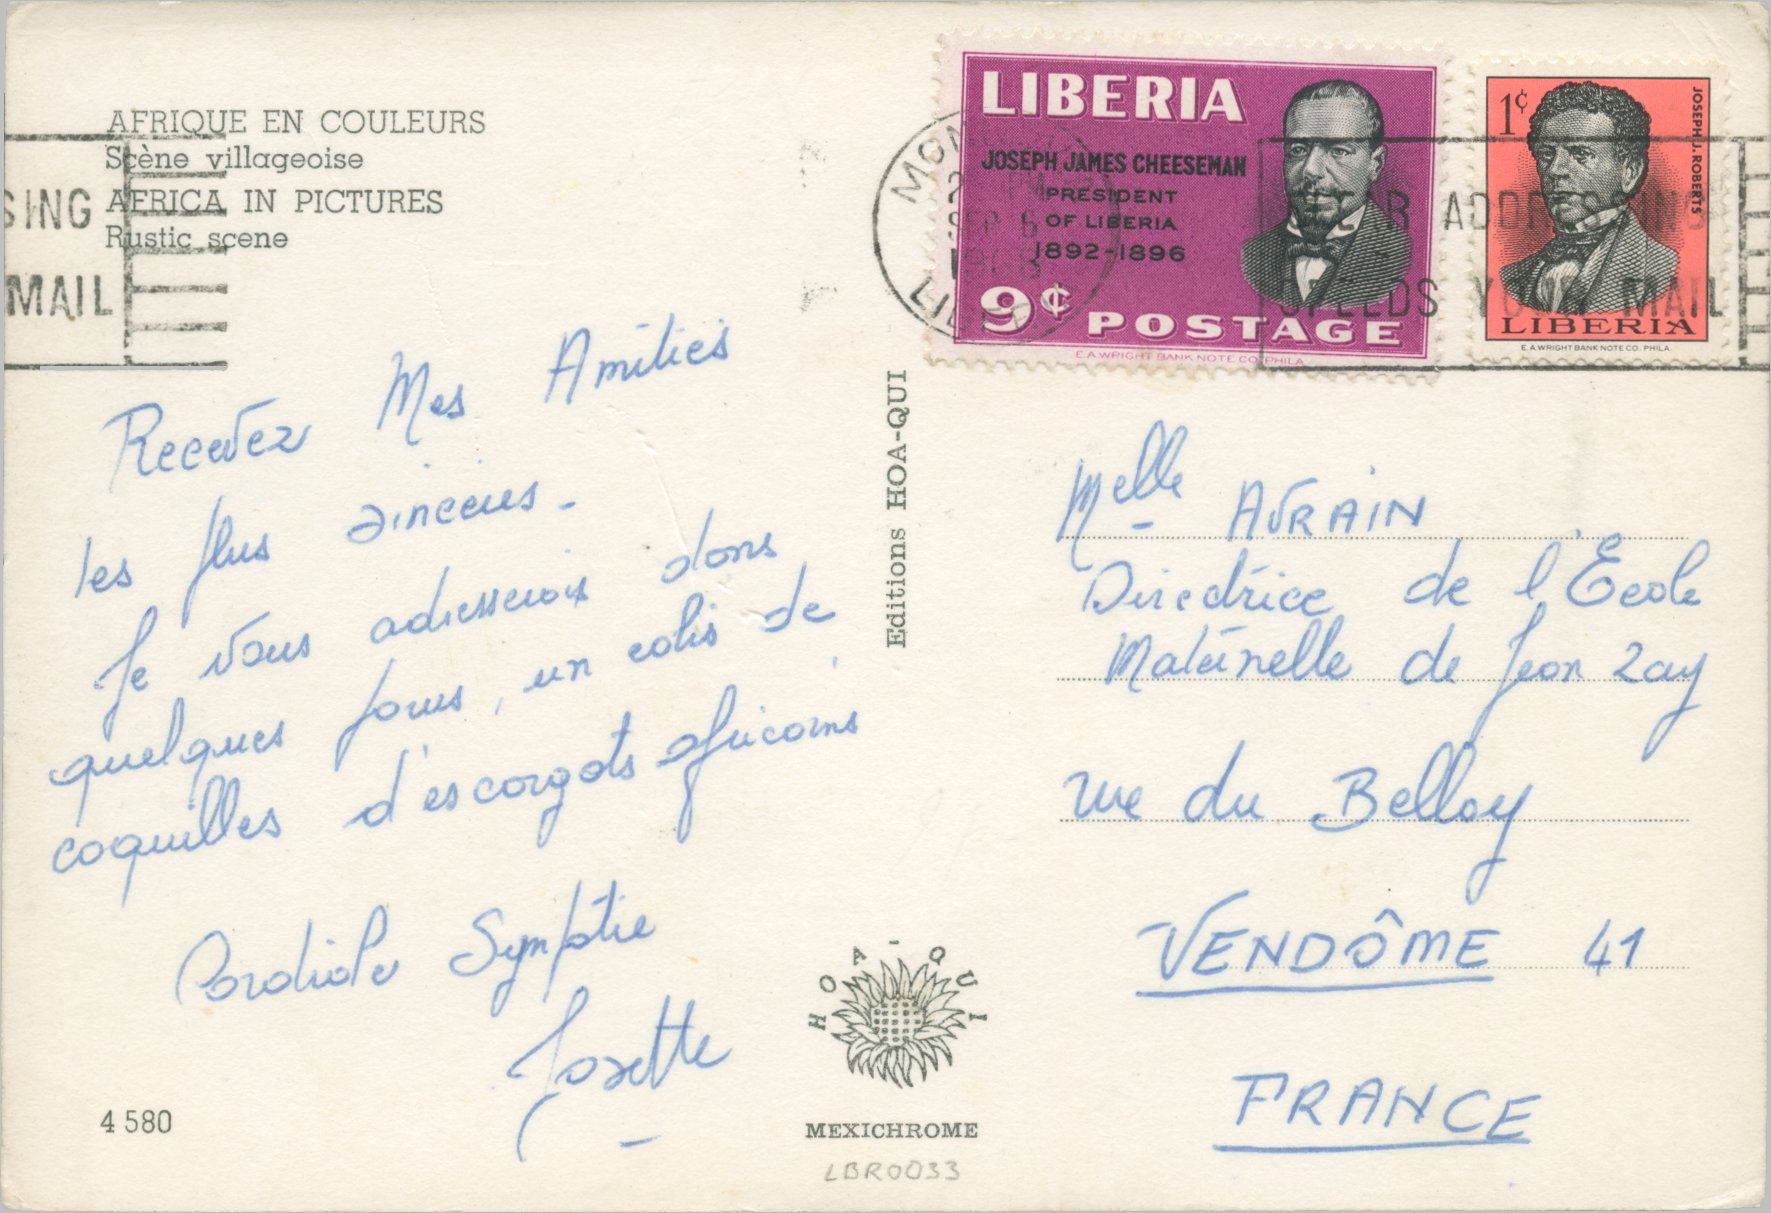 AFRIQUE EN COULEURS
Scène villageoise
AFRICA IN PICTURES
Rustic scene
SING
MAIL
LIBERIA
JOSEPH JAMES CHEESEMAN
PRESIDENT
OF LIBERIA
1892-1896
9¢ POSTAGE
E.A.WRIGHT BANK NOTE CO. PHILA.
1¢
JOSEPH J. ROBERTS
LIBERIA
E.A.WRIGHT BANK NOTE CO. PHILA.
SEP 6
SPEEDS YOUR MAIL
Recevez Mes Amitiés
les plus sincères -
Je vous adresserais dans
quelques jours, un colis de
coquilles d'escargots africains
Cordiale Sympatie
Josette
4 580
Editions HOA-QUI
HOA-QUI
MEXICHROME
LBR0033
Melle AVRAIN
Directrice de l'École
Maternelle de Jean Zay
rue du Belloy
VENDÔME 41
FRANCE